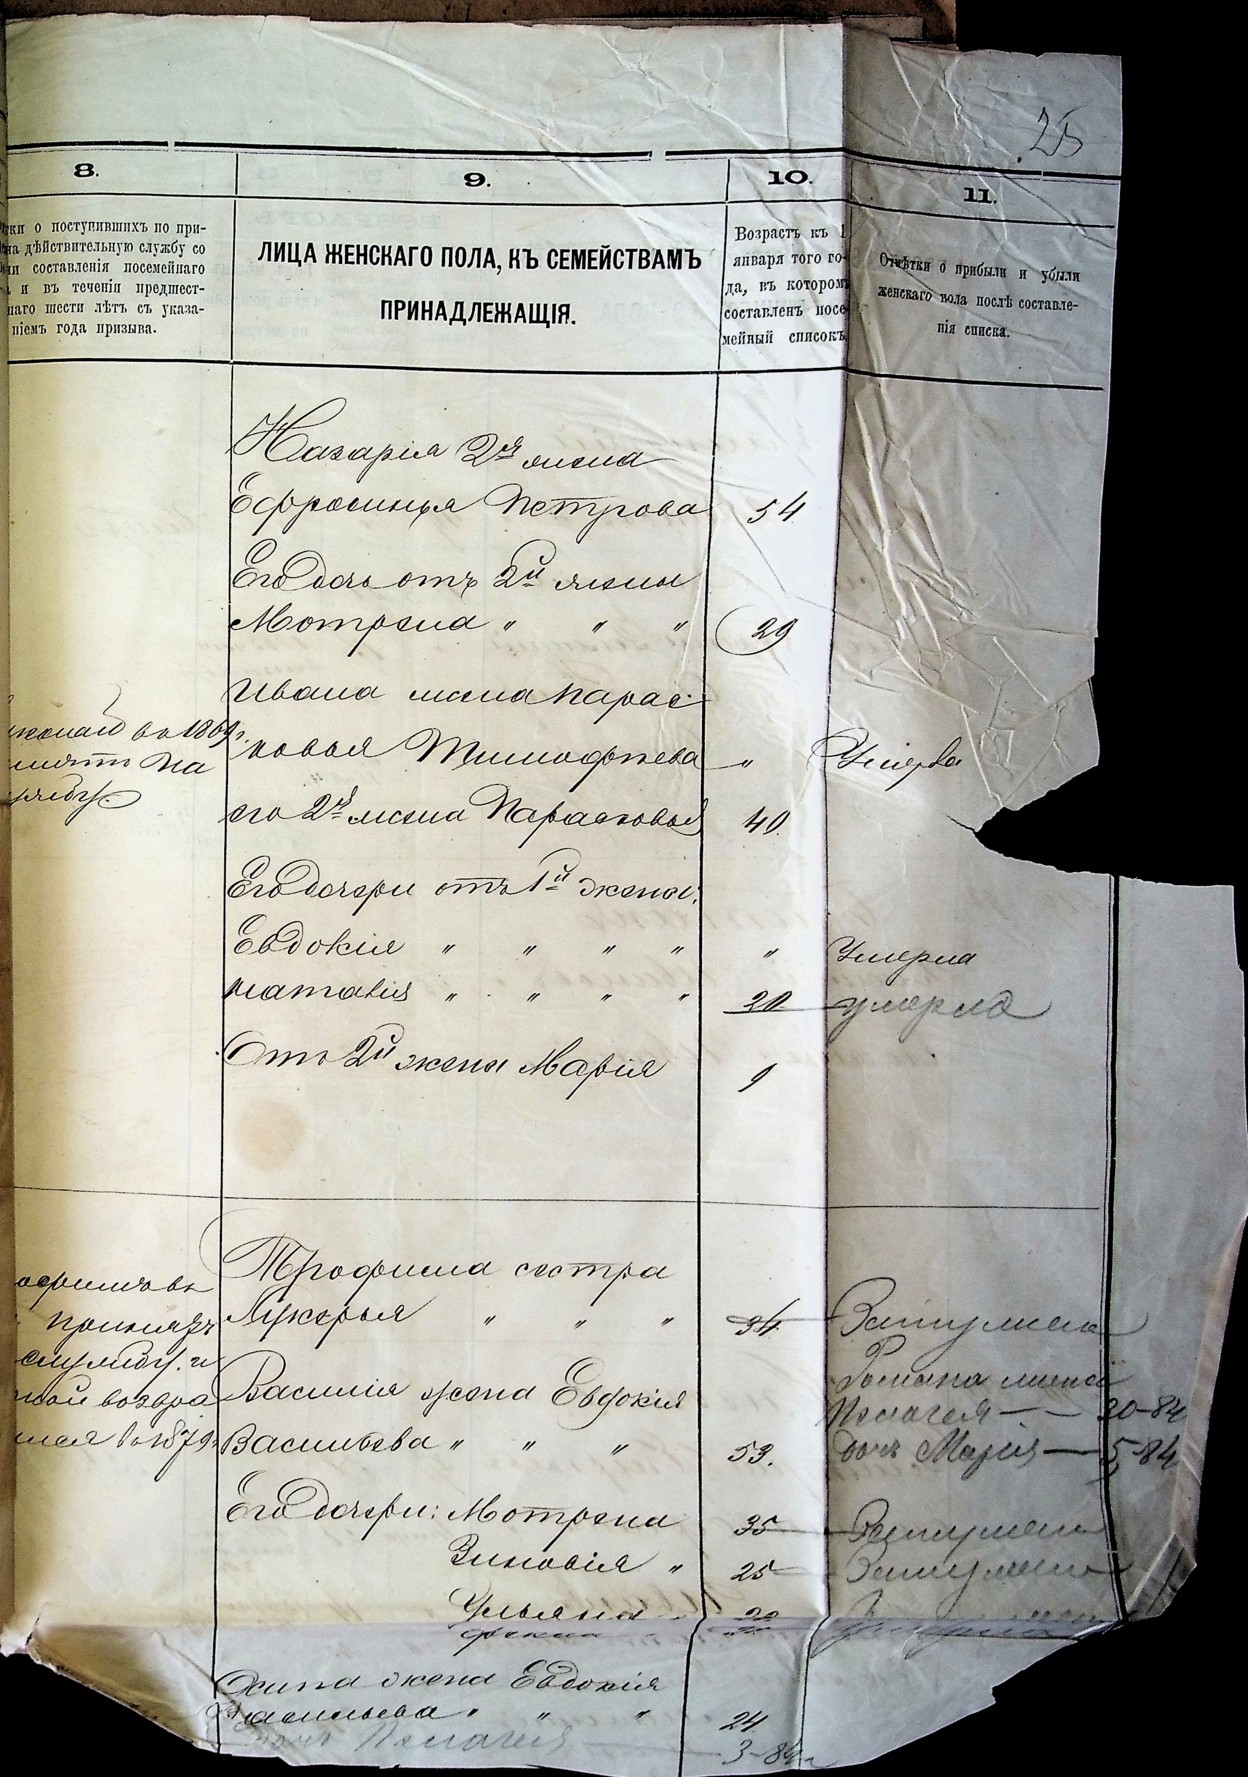 25
8.
9.
10.
11.
тки о поступившихъ по при-
на дѣйствительную службу со
ни составленія посемейнаго
и въ теченіи предшест-
наго шести лѣтъ съ указа-
ніемъ года призыва.
ЛИЦА ЖЕНСКАГО ПОЛА, КЪ СЕМЕЙСТВАМЪ
ПРИНАДЛЕЖАЩІЯ.
Возрастъ къ 1
января того го-
да, въ которомъ
составленъ посе-
мейный списокъ
Отмѣтки о прибыли и убыли
женскаго пола послѣ составле-
нія списка.
Назарія 2я жена
Ефросинья Петрова 54
Его дочь отъ 2й жены
Мотрена " " " 29
Ивана жена Парас-
ковья Тимофѣева " Умерла
во 1869г.
на
службу.
его 2я жена Парасковья 40
Его дочери отъ 1й жены:
Евдокія " " " " " Умерла
Наталія " " " " 20 умерла
Отъ 2й жены Марія 9
Трофима сестра
Лукерья " " " 34 Замужем
принятъ
службу. и
возвра
лся въ 1879г.
Василія жена Евдокія
Васильева " " " 53.
Романа жена
Пелагея — — 20-84
дочь Марія — 5-84
Его дочери: Мотрена 35 Замужем
Зиновія " 25 Замужем
Ульяна 20
Осипа жена Евдокія
Васильева " " " 24
дочь Пелагея 3-84г